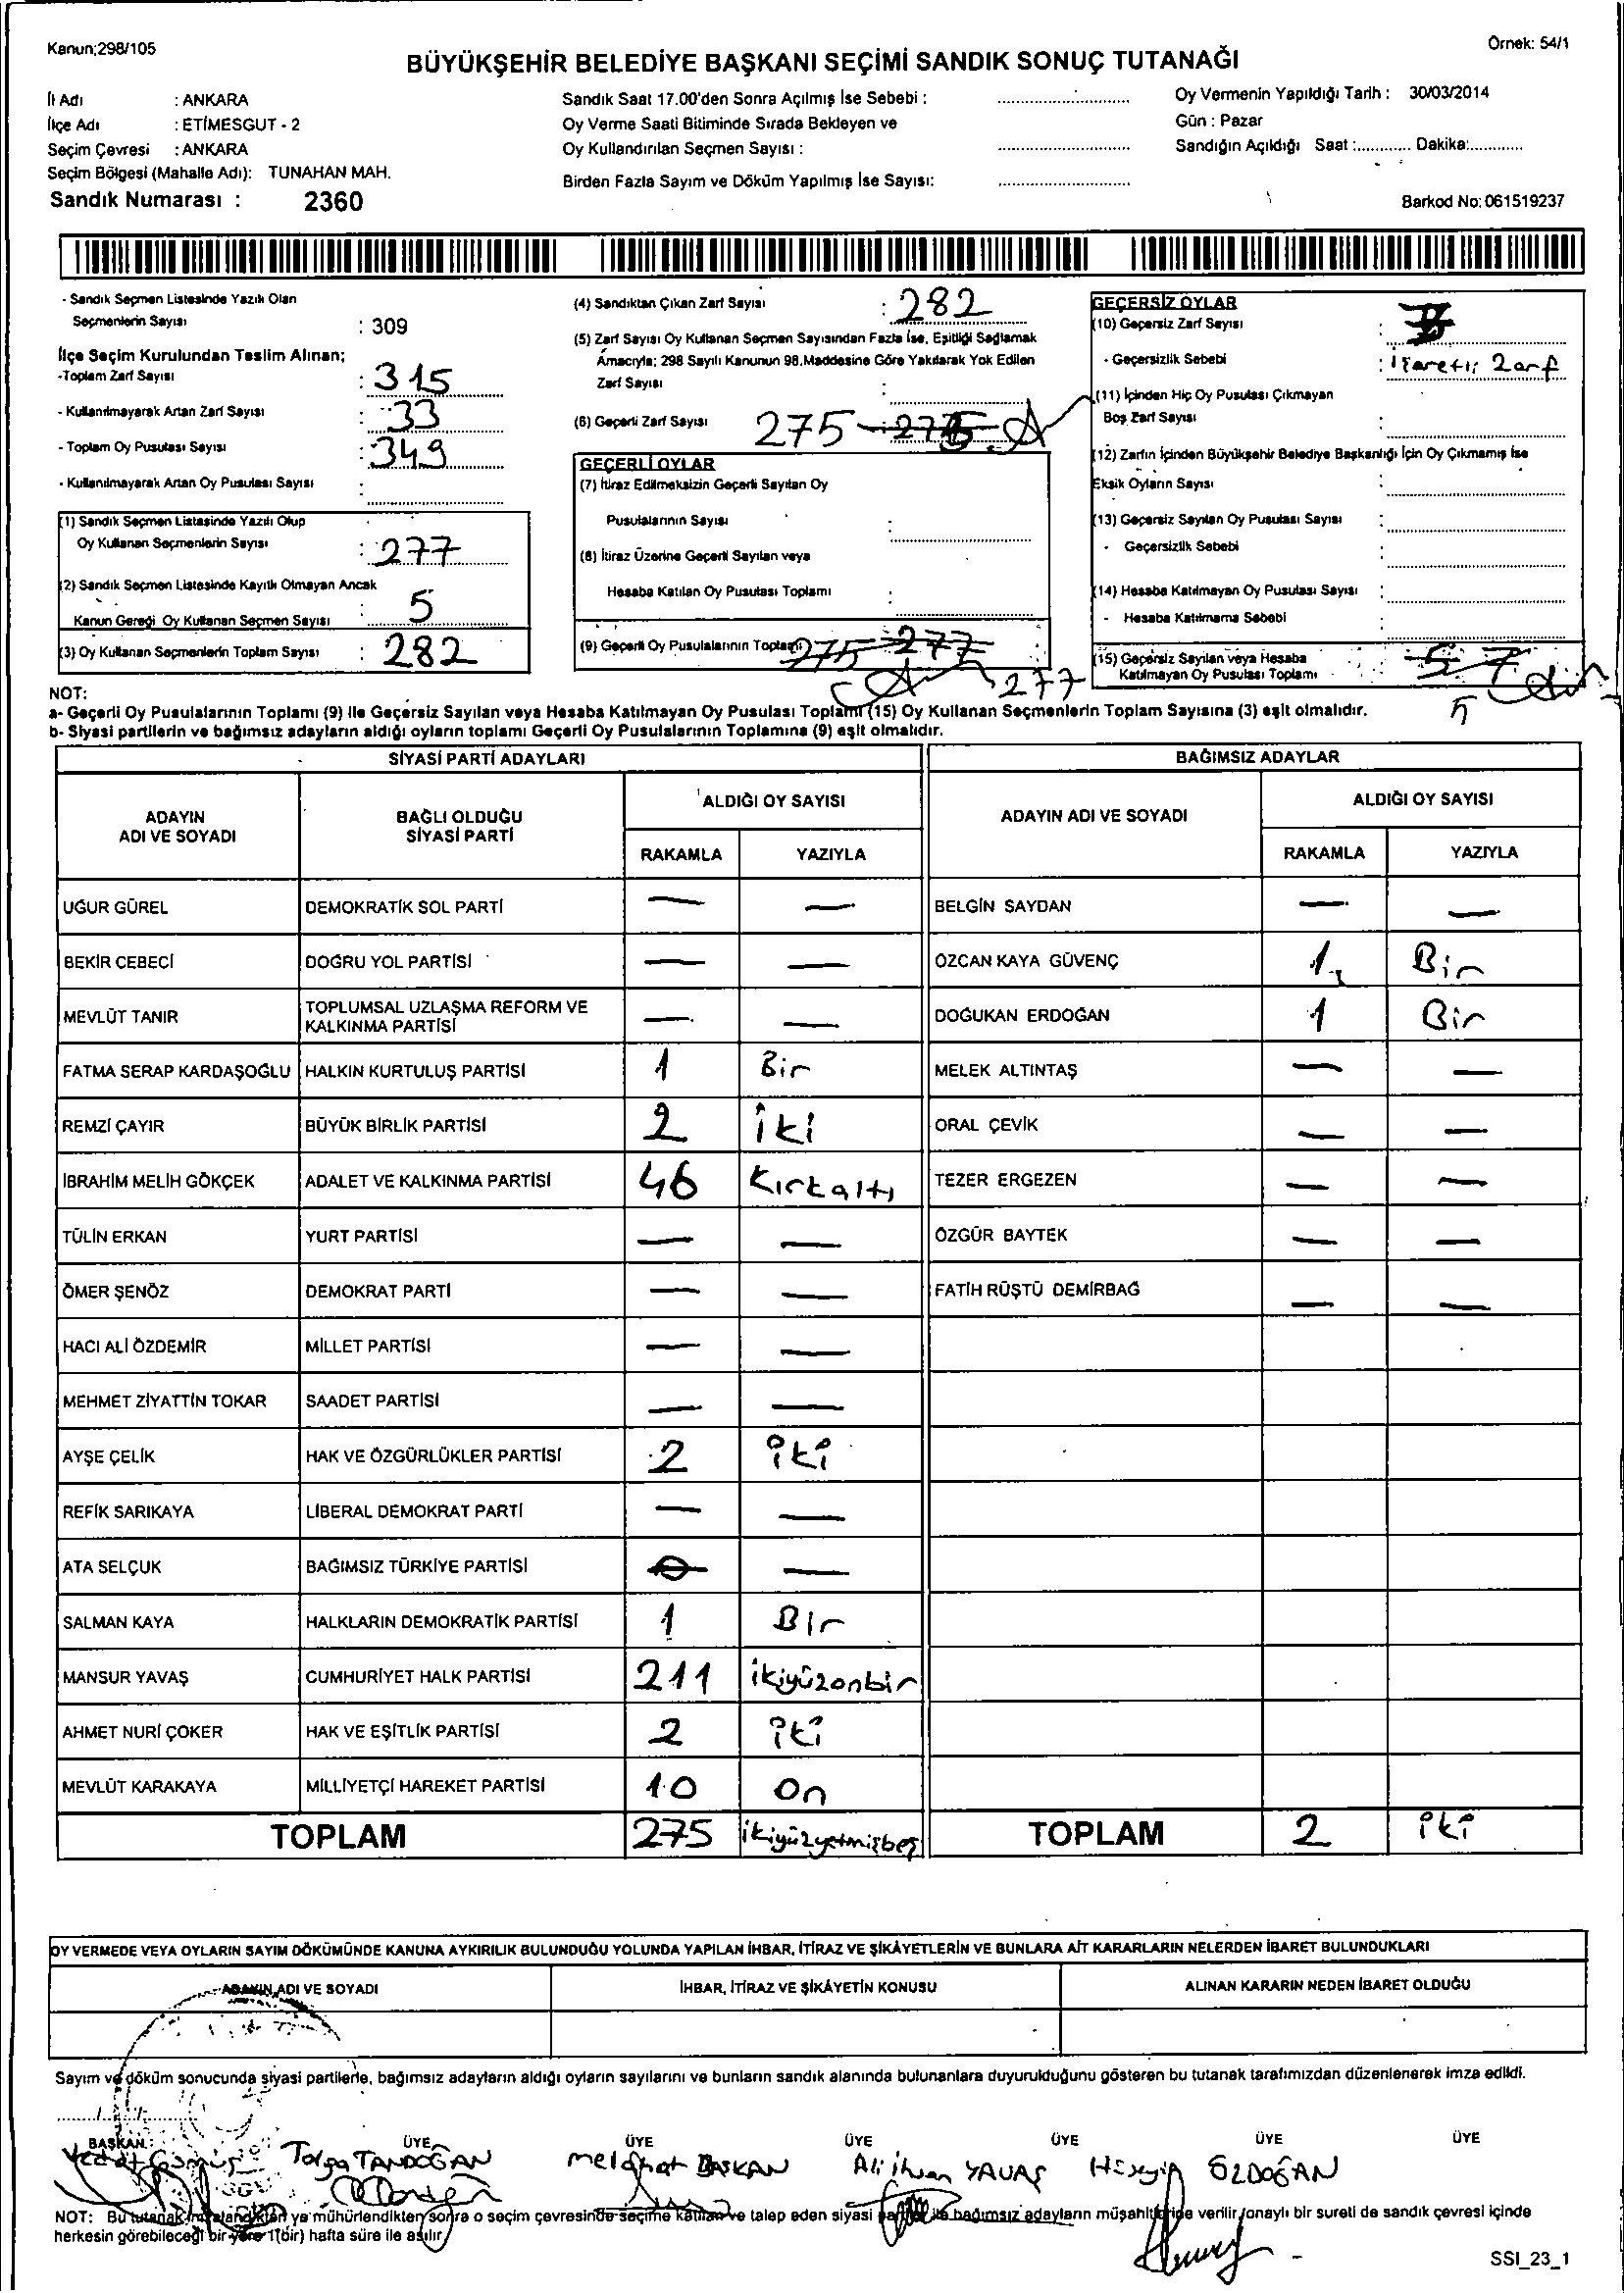 Kanun;298/105
Örnek: 54/1
BÜYÜKŞEHİR BELEDİYE BAŞKANI SEÇİMİ SANDIK SONUÇ TUTANAĞI
İl Adı : ANKARA
İlçe Adı : ETİMESGUT - 2
Seçim Çevresi : ANKARA
Seçim Bölgesi (Mahalle Adı): TUNAHAN MAH.
Sandık Numarası : 2360
Sandık Saat 17.00'den Sonra Açılmış İse Sebebi :
Oy Verme Saati Bitiminde Sırada Bekleyen ve
Oy Kullandırılan Seçmen Sayısı :
Birden Fazla Sayım ve Döküm Yapılmış İse Sayısı:
Oy Vermenin Yapıldığı Tarih : 30/03/2014
Gün : Pazar
Sandığın Açıldığı Saat :............ Dakika:............
Barkod No: 061519237
- Sandık Seçmen Listesinde Yazılı Olan
Seçmenlerin Sayısı : 309
İlçe Seçim Kurulundan Teslim Alınan;
-Toplam Zarf Sayısı : 315
- Kullanılmayarak Artan Zarf Sayısı : 33
- Toplam Oy Pusulası Sayısı : 349
- Kullanılmayarak Artan Oy Pusulası Sayısı :
(1) Sandık Seçmen Listesinde Yazılı Olup
Oy Kullanan Seçmenlerin Sayısı : 277
(2) Sandık Seçmen Listesinde Kayıtlı Olmayan Ancak
Kanun Gereği Oy Kullanan Seçmen Sayısı : 5
(3) Oy Kullanan Seçmenlerin Toplam Sayısı : 282
(4) Sandıktan Çıkan Zarf Sayısı : 282
(5) Zarf Sayısı Oy Kullanan Seçmen Sayısından Fazla İse, Eşitliği Sağlamak
Amacıyla; 298 Sayılı Kanunun 98.Maddesine Göre Yakılarak Yok Edilen
Zarf Sayısı :
(6) Geçerli Zarf Sayısı 275
GEÇERLİ OYLAR
(7) İtiraz Edilmeksizin Geçerli Sayılan Oy
Pusulalarının Sayısı :
(8) İtiraz Üzerine Geçerli Sayılan veya
Hesaba Katılan Oy Pusulası Toplamı :
(9) Geçerli Oy Pusulalarının Toplamı 275 277
277
GEÇERSİZ OYLAR
(10) Geçersiz Zarf Sayısı :
- Geçersizlik Sebebi : İşaretli Zarf
(11) İçinden Hiç Oy Pusulası Çıkmayan
Boş Zarf Sayısı :
(12) Zarfın İçinden Büyükşehir Belediye Başkanlığı İçin Oy Çıkmamış İse
Eksik Oyların Sayısı :
(13) Geçersiz Sayılan Oy Pusulası Sayısı :
- Geçersizlik Sebebi :
(14) Hesaba Katılmayan Oy Pusulası Sayısı :
- Hesaba Katılmama Sebebi :
(15) Geçersiz Sayılan veya Hesaba
Katılmayan Oy Pusulası Toplamı : 5 7
5
NOT:
a- Geçerli Oy Pusulalarının Toplamı (9) ile Geçersiz Sayılan veya Hesaba Katılmayan Oy Pusulası Toplamı (15) Oy Kullanan Seçmenlerin Toplam Sayısına (3) eşit olmalıdır.
b- Siyasi partilerin ve bağımsız adayların aldığı oyların toplamı Geçerli Oy Pusulalarının Toplamına (9) eşit olmalıdır.
SİYASİ PARTİ ADAYLARI BAĞIMSIZ ADAYLAR
ADAYIN ADI VE SOYADI
BAĞLI OLDUĞU SİYASİ PARTİ
ALDIĞI OY SAYISI
RAKAMLA YAZIYLA
ADAYIN ADI VE SOYADI
ALDIĞI OY SAYISI
RAKAMLA YAZIYLA
UĞUR GÜREL DEMOKRATİK SOL PARTİ — — BELGİN SAYDAN — —
BEKİR CEBECİ DOĞRU YOL PARTİSİ — — ÖZCAN KAYA GÜVENÇ 1 Bir
MEVLÜT TANIR TOPLUMSAL UZLAŞMA REFORM VE KALKINMA PARTİSİ — — DOĞUKAN ERDOĞAN 1 Bir
FATMA SERAP KARDAŞOĞLU HALKIN KURTULUŞ PARTİSİ 1 Bir MELEK ALTINTAŞ — —
REMZİ ÇAYIR BÜYÜK BİRLİK PARTİSİ 2 iki ORAL ÇEVİK — —
İBRAHİM MELİH GÖKÇEK ADALET VE KALKINMA PARTİSİ 46 Kırkaltı TEZER ERGEZEN — —
TÜLİN ERKAN YURT PARTİSİ — — ÖZGÜR BAYTEK — —
ÖMER ŞENÖZ DEMOKRAT PARTİ — — FATİH RÜŞTÜ DEMİRBAĞ — —
HACI ALİ ÖZDEMİR MİLLET PARTİSİ — —
MEHMET ZİYATTİN TOKAR SAADET PARTİSİ — —
AYŞE ÇELİK HAK VE ÖZGÜRLÜKLER PARTİSİ 2 iki
REFİK SARIKAYA LİBERAL DEMOKRAT PARTİ — —
ATA SELÇUK BAĞIMSIZ TÜRKİYE PARTİSİ — —
SALMAN KAYA HALKLARIN DEMOKRATİK PARTİSİ 1 Bir
MANSUR YAVAŞ CUMHURİYET HALK PARTİSİ 211 ikiyüzonbir
AHMET NURİ ÇOKER HAK VE EŞİTLİK PARTİSİ 2 iki
MEVLÜT KARAKAYA MİLLİYETÇİ HAREKET PARTİSİ 10 on
TOPLAM 275 ikiyüzyetmişbeş TOPLAM 2 iki
OY VERMEDE VEYA OYLARIN SAYIM DÖKÜMÜNDE KANUNA AYKIRILIK BULUNDUĞU YOLUNDA YAPILAN İHBAR, İTİRAZ VE ŞİKÂYETLERİN VE BUNLARA AİT KARARLARIN NELERDEN İBARET BULUNDUKLARI
ADAYIN ADI VE SOYADI İHBAR, İTİRAZ VE ŞİKÂYETİN KONUSU ALINAN KARARIN NEDEN İBARET OLDUĞU
Sayım ve döküm sonucunda siyasi partilerle, bağımsız adayların aldığı oyların sayılarını ve bunların sandık alanında bulunanlara duyurulduğunu gösteren bu tutanak tarafımızdan düzenlenerek imza edildi.
BAŞKAN ÜYE ÜYE ÜYE ÜYE ÜYE ÜYE
Vedat Tolga TANDOĞAN Melahat BAŞKAN Ali İhsan YAVAŞ Hüseyin ÖZDOĞAN
NOT: Bu tutanak imzalandıktan ve mühürlendikten sonra o seçim çevresinde seçime katılan ve talep eden siyasi parti ile bağımsız adayların müşahitlerine verilir onaylı bir sureti de sandık çevresi içinde
herkesin görebileceği bir yere 1(bir) hafta süre ile asılır
SSI_23_1